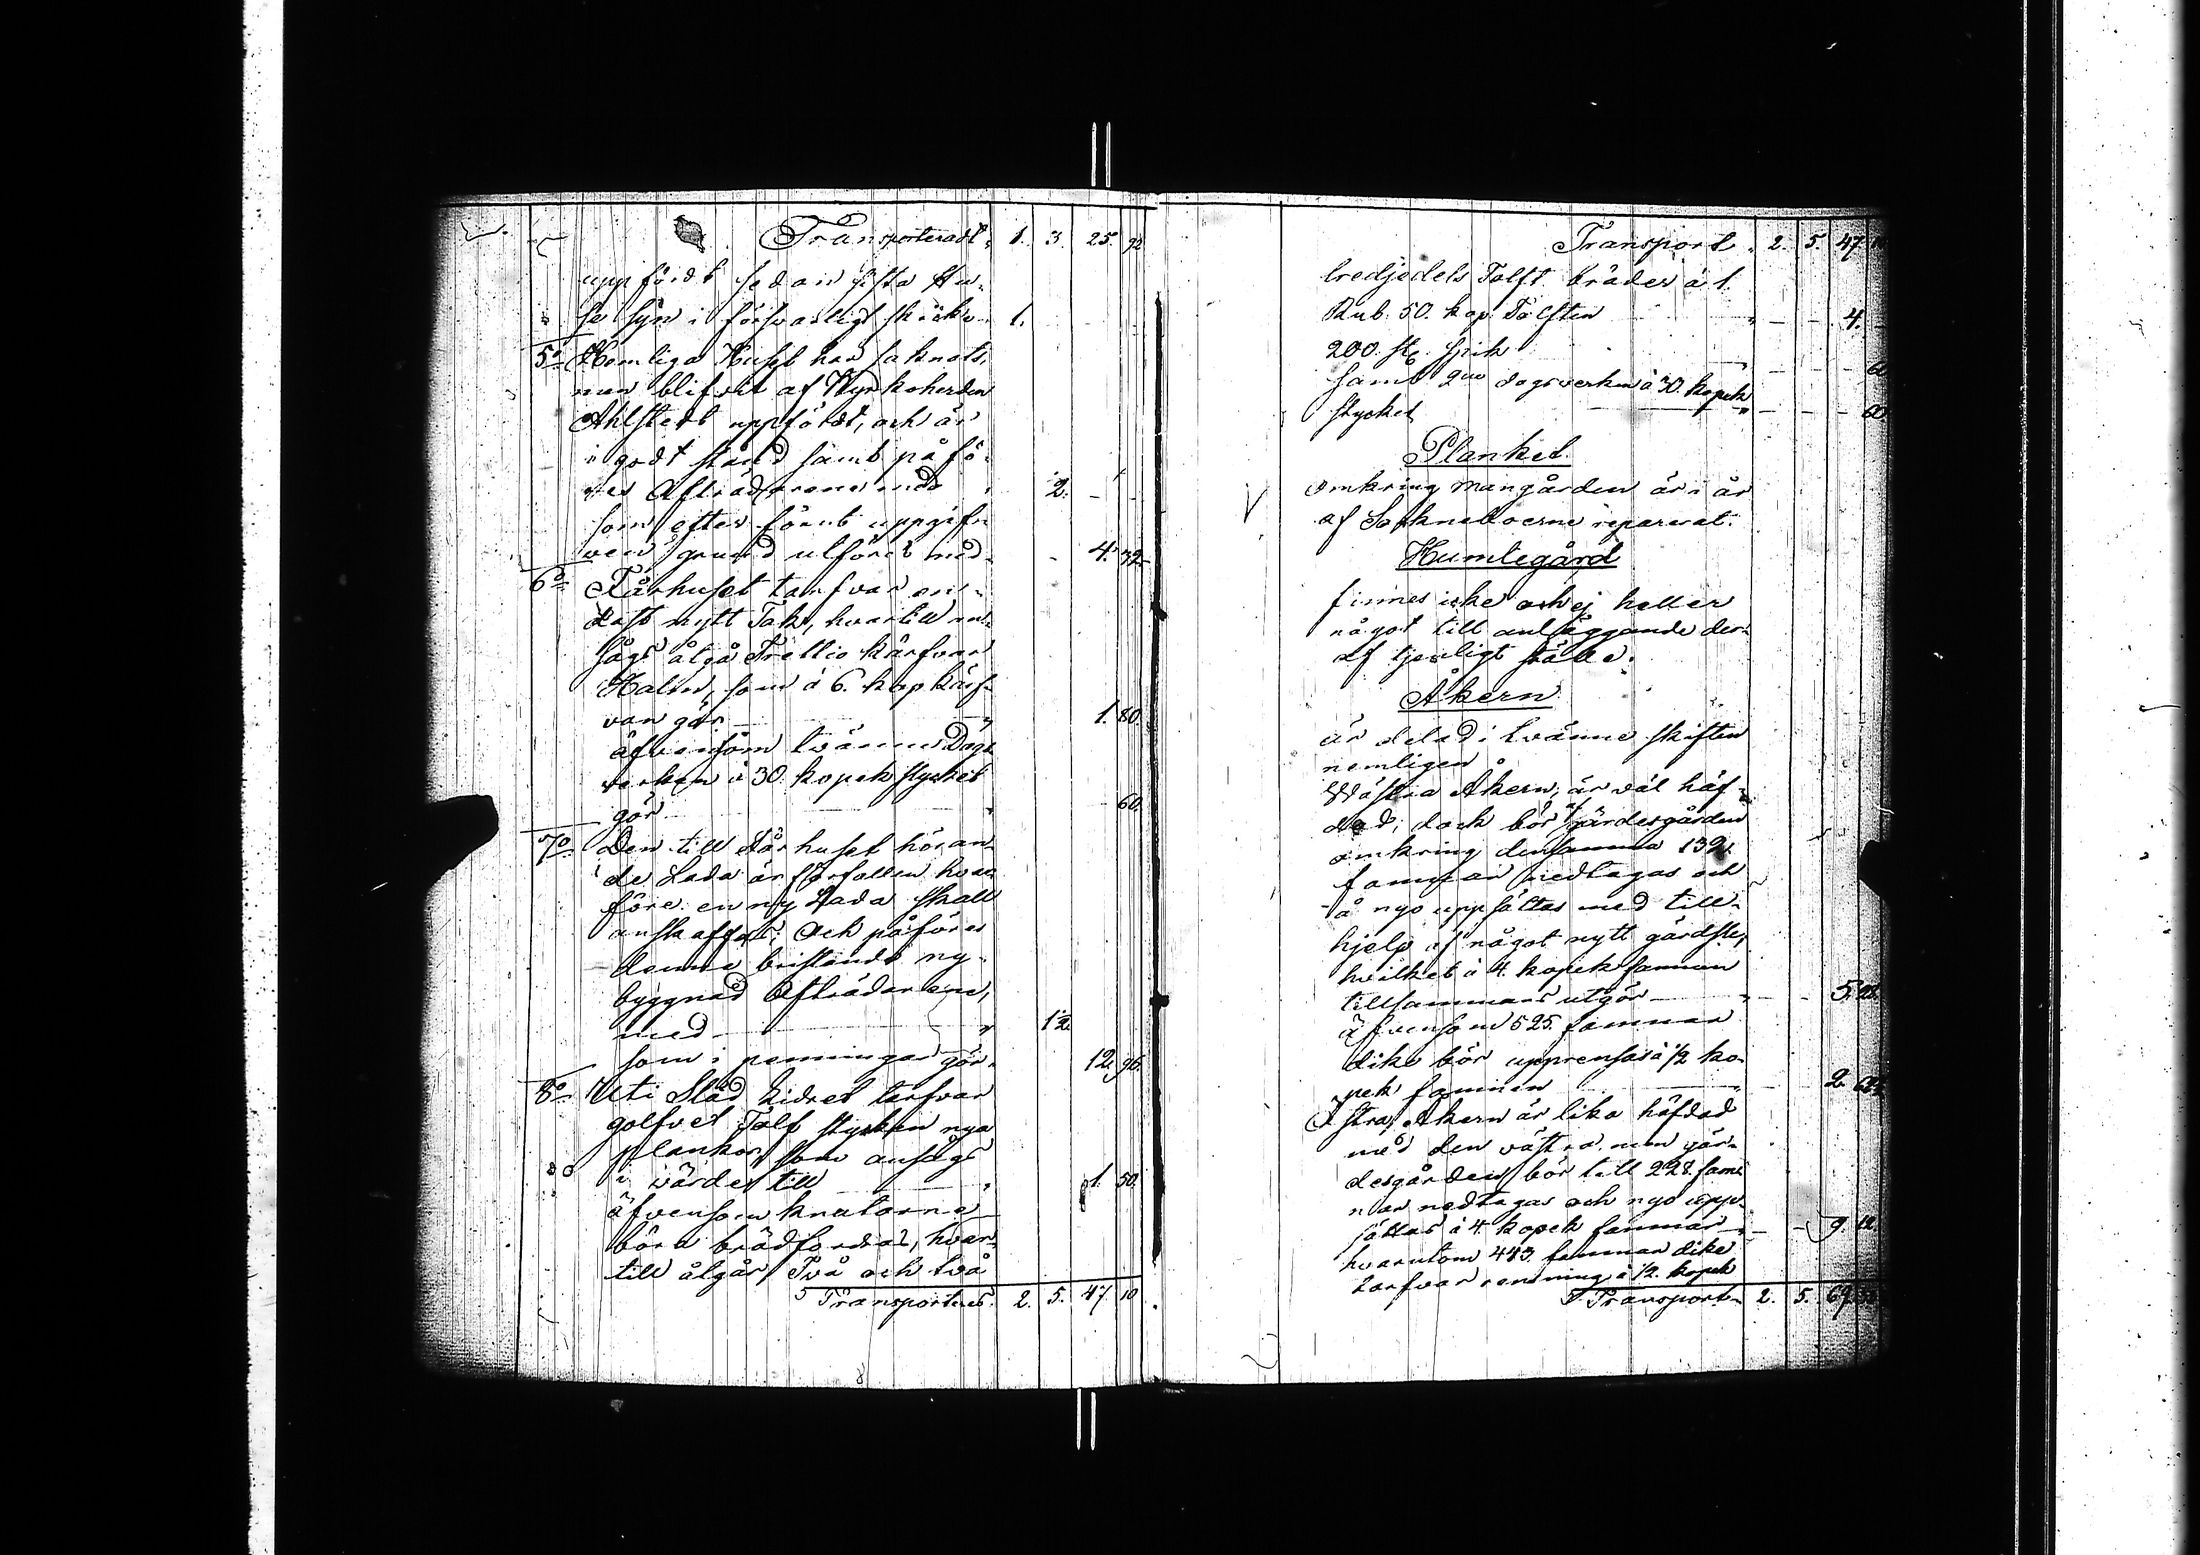 Transporteradt, 1. 3. 25. 92
uppfördt sedan sista Hu-
se syn i försvarligt skicke 1.
5o Hemliga Huset har saknats,
men blifvit af Kyrkoherden
Ahlstedt uppfördt, och är
i godt stånd samt på fö-
res Afträdarene med 2. - -
som efter förut uppgifn
ven grund utföres med - 4. 32
6o Fårhuset tarfvar en-
dast nytt Tak, hvartill an-
sågs åtgå Trettio kärfvar
Halm, som á 6. kop kärf-
van gör 1. 80.
äfvensom tvänne Dags-
verken á 30. kopek stycket
gör 60.
7o Den till Fårhuset höran-
de Lada är förfallen hvar-
före en ny Lada skall
anskaffas; Och påföres
denna bristande ny-
byggnad Afträdarene,
med 12.
som i penningar gör. 12. 96.
8o Uti Stad Lidret tarfvar
golfvet Tolf stycken nya
plankor, som ansågs
i värde till 1. 50.
äfvensom knutarne
böra brädfordras, hvar-
till åtgår Två och två
Transporteras. 2. 5. 47. 10
Transport. 2. 5. 47.
tredjedels Tolft bräder á 1.
Rub. 50. kop. Tolften - - 4. -
200. st. spik - - - 60
samt 2ne dagsverken á 30. kopek
stycket - - - 60
Planket.
omkring mangården är i år
af Sockneboerne reparerat.
Humlegård
finnes icke och ej heller
något till anläggande der-
af tjenligt ställe.
Åkern
är delad i tvänne skiften
nemligen
Westra Åkern, är väl häf-
dad; dock bör af gärdesgården
omkring densamma 132.
famnar nedtagas och
å nyo uppsättas med till-
hjelp af något nytt gärdsle,
hvilket á 4. kopek famnen
tillsammans utgör 5. 28.
äfvensom 525. famnar
dike bör upprensas á 1/2 ko-
pek famnen 2. 62 1/2
Östra Åkern är lika häfdad
med den västra, men gär-
desgården bör till 228. fam-
nar nedtagas och nyo upp-
sättas á 4. kopek famnar - - 9. 12.
hvarutom 443. famnar dike
tarfvar rensning á 1/2. kopek
Transport 2. 5. 69.